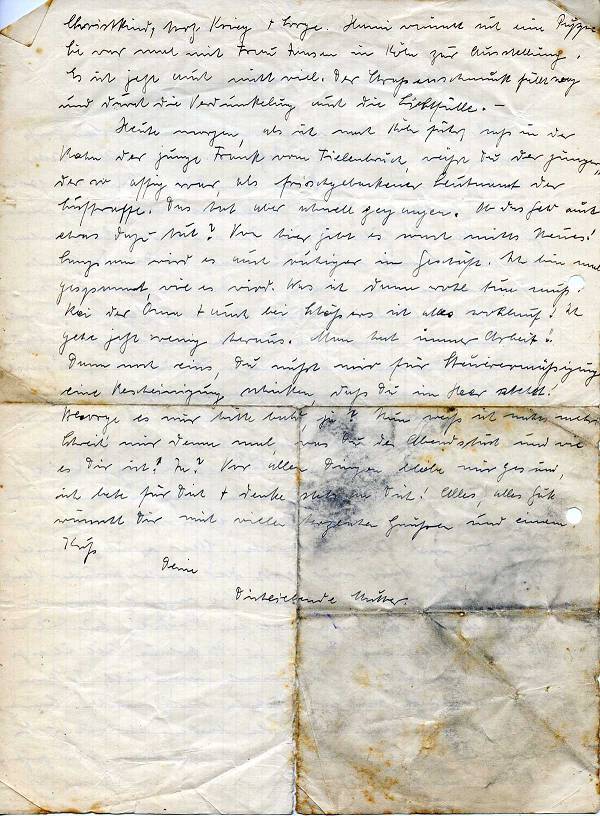 Christkind, trotz Krieg + Sorge. Hanni wünscht sich eine Puppe
Sie war mal mit Frau Jansen in Köln zur Ausstellung.
Es ist jetzt auch nicht viel. Der Straßenschmuck fällt weg
und durch die Verdunkelung auch die Lichtfülle. –
Heute morgen, als ich nach Köln fuhr, saß in der
Bahn der junge Frank vom Tielenbruch, weißt Du der jüngere,
der so affig war, als frischgebackener Leutnant der
Luftwaffe. Das hat aber schnell gegangen. Ob das Geld auch
etwas dazu tut? Von hier gibt es sonst nichts Neues!
Langsam wird es auch ruhiger im Geschäft. Ich bin mal
gespannt, wie es wird. Was ich dann wohl tun muß.
Bei der Oma + auch bei ist alles wohlauf! Ich
gehe jetzt wenig heraus. Man hat immer Arbeit!
Dann noch eins, Du mußt mir für Steuerermäßigung
eine Bescheinigung schicken, daß Du im Heer stehst!
Besorge es mir bitte bald, ja? Nun weiß ich nichts mehr
Schreib mir dann mal, was Du des Abends tust und wie
es Dir ist? Ja? Vor allen Dingen bleibe mir gesund,
ich bete für Dich + denke stets an Dich! Alles, alles Gute
wünscht Dir mit vielen herzlichen Grüßen und einem
Kuß
Deine
Dichliebende Mutter.